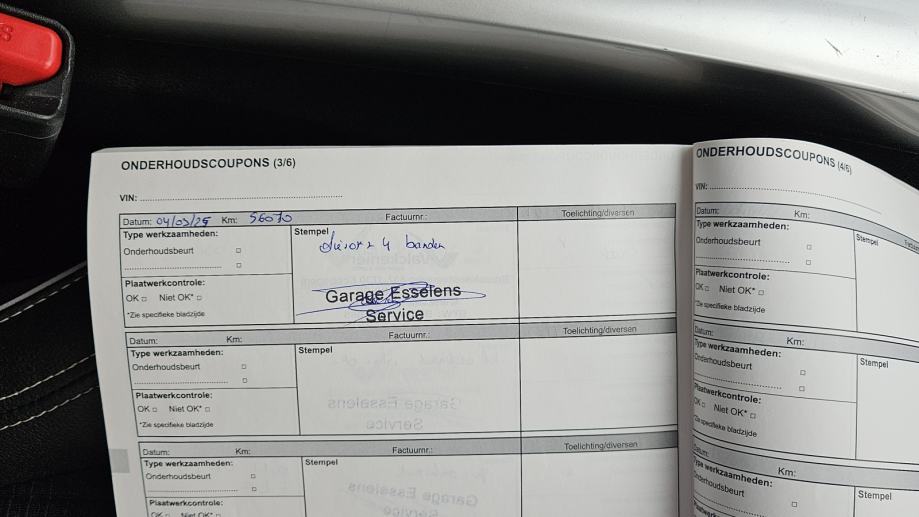 ONDERHOUDSCOUPONS (3/6)
VIN:
Datum: 04/03/25 Km: 56070 Factuurnr.: Toelichting/diversen
Type werkzaamheden: Stempel
Onderhoudsbeurt
4 banden
Plaatwerkcontrole:
OK Niet OK*
*Zie specifieke bladzijde
Garage Esselens
Service
Datum: Km: Factuurnr.: Toelichting/diversen
Type werkzaamheden: Stempel
Onderhoudsbeurt
Plaatwerkcontrole:
OK Niet OK*
*Zie specifieke bladzijde
Garage Esselens
Service
Datum: Km: Factuurnr.: Toelichting/diversen
Type werkzaamheden: Stempel
Onderhoudsbeurt
Plaatwerkcontrole:
OK Niet OK*
Garage Esselens
Service
ONDERHOUDSCOUPONS (4/6)
VIN:
Datum: Km:
Type werkzaamheden: Stempel
Onderhoudsbeurt
Plaatwerkcontrole:
OK Niet OK*
*Zie specifieke bladzijde
Datum: Km:
Type werkzaamheden: Stempel
Onderhoudsbeurt
Plaatwerkcontrole:
OK Niet OK*
*Zie specifieke bladzijde
Datum: Km:
Type werkzaamheden: Stempel
Onderhoudsbeurt
Plaatwerkcontrole: